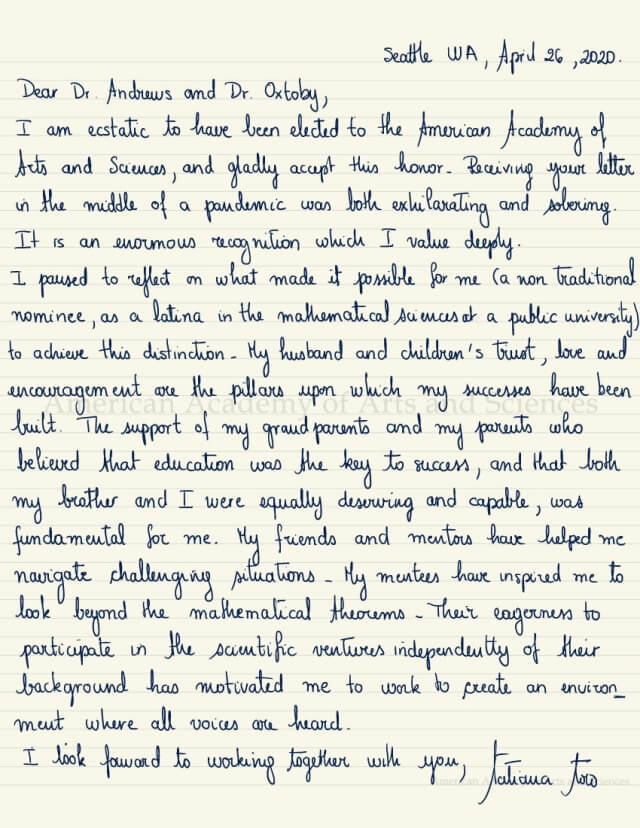 Seattle WA, April 26, 2020.
Dear Dr. Andrews and Dr. Oxtoby,
I am ecstatic to have been elected to the American Academy of
Arts and Sciences, and gladly accept this honor. Receiving your letter
in the middle of a pandemic was both exhilarating and sobering.
It is an enormous recognition which I value deeply.
I paused to reflect on what made it possible for me (a non traditional
nominee, as a latina in the mathematical sciences at a public university)
to achieve this distinction. My husband and children's trust, love and
encouragement are the pillars upon which my successes have been
American Academy of Arts and Sciences
built. The support of my grandparents and my parents who
believed that education was the key to success, and that both
my brother and I were equally deserving and capable, was
fundamental for me. My friends and mentors have helped me
navigate challenging situations. My mentees have inspired me to
look beyond the mathematical theorems. Their eagerness to
participate in the scientific ventures independently of their
background has motivated me to work to create an environ_
ment where all voices are heard.
I look foward to working together with you, Tatiana Toro
American Academy of Arts and Sciences